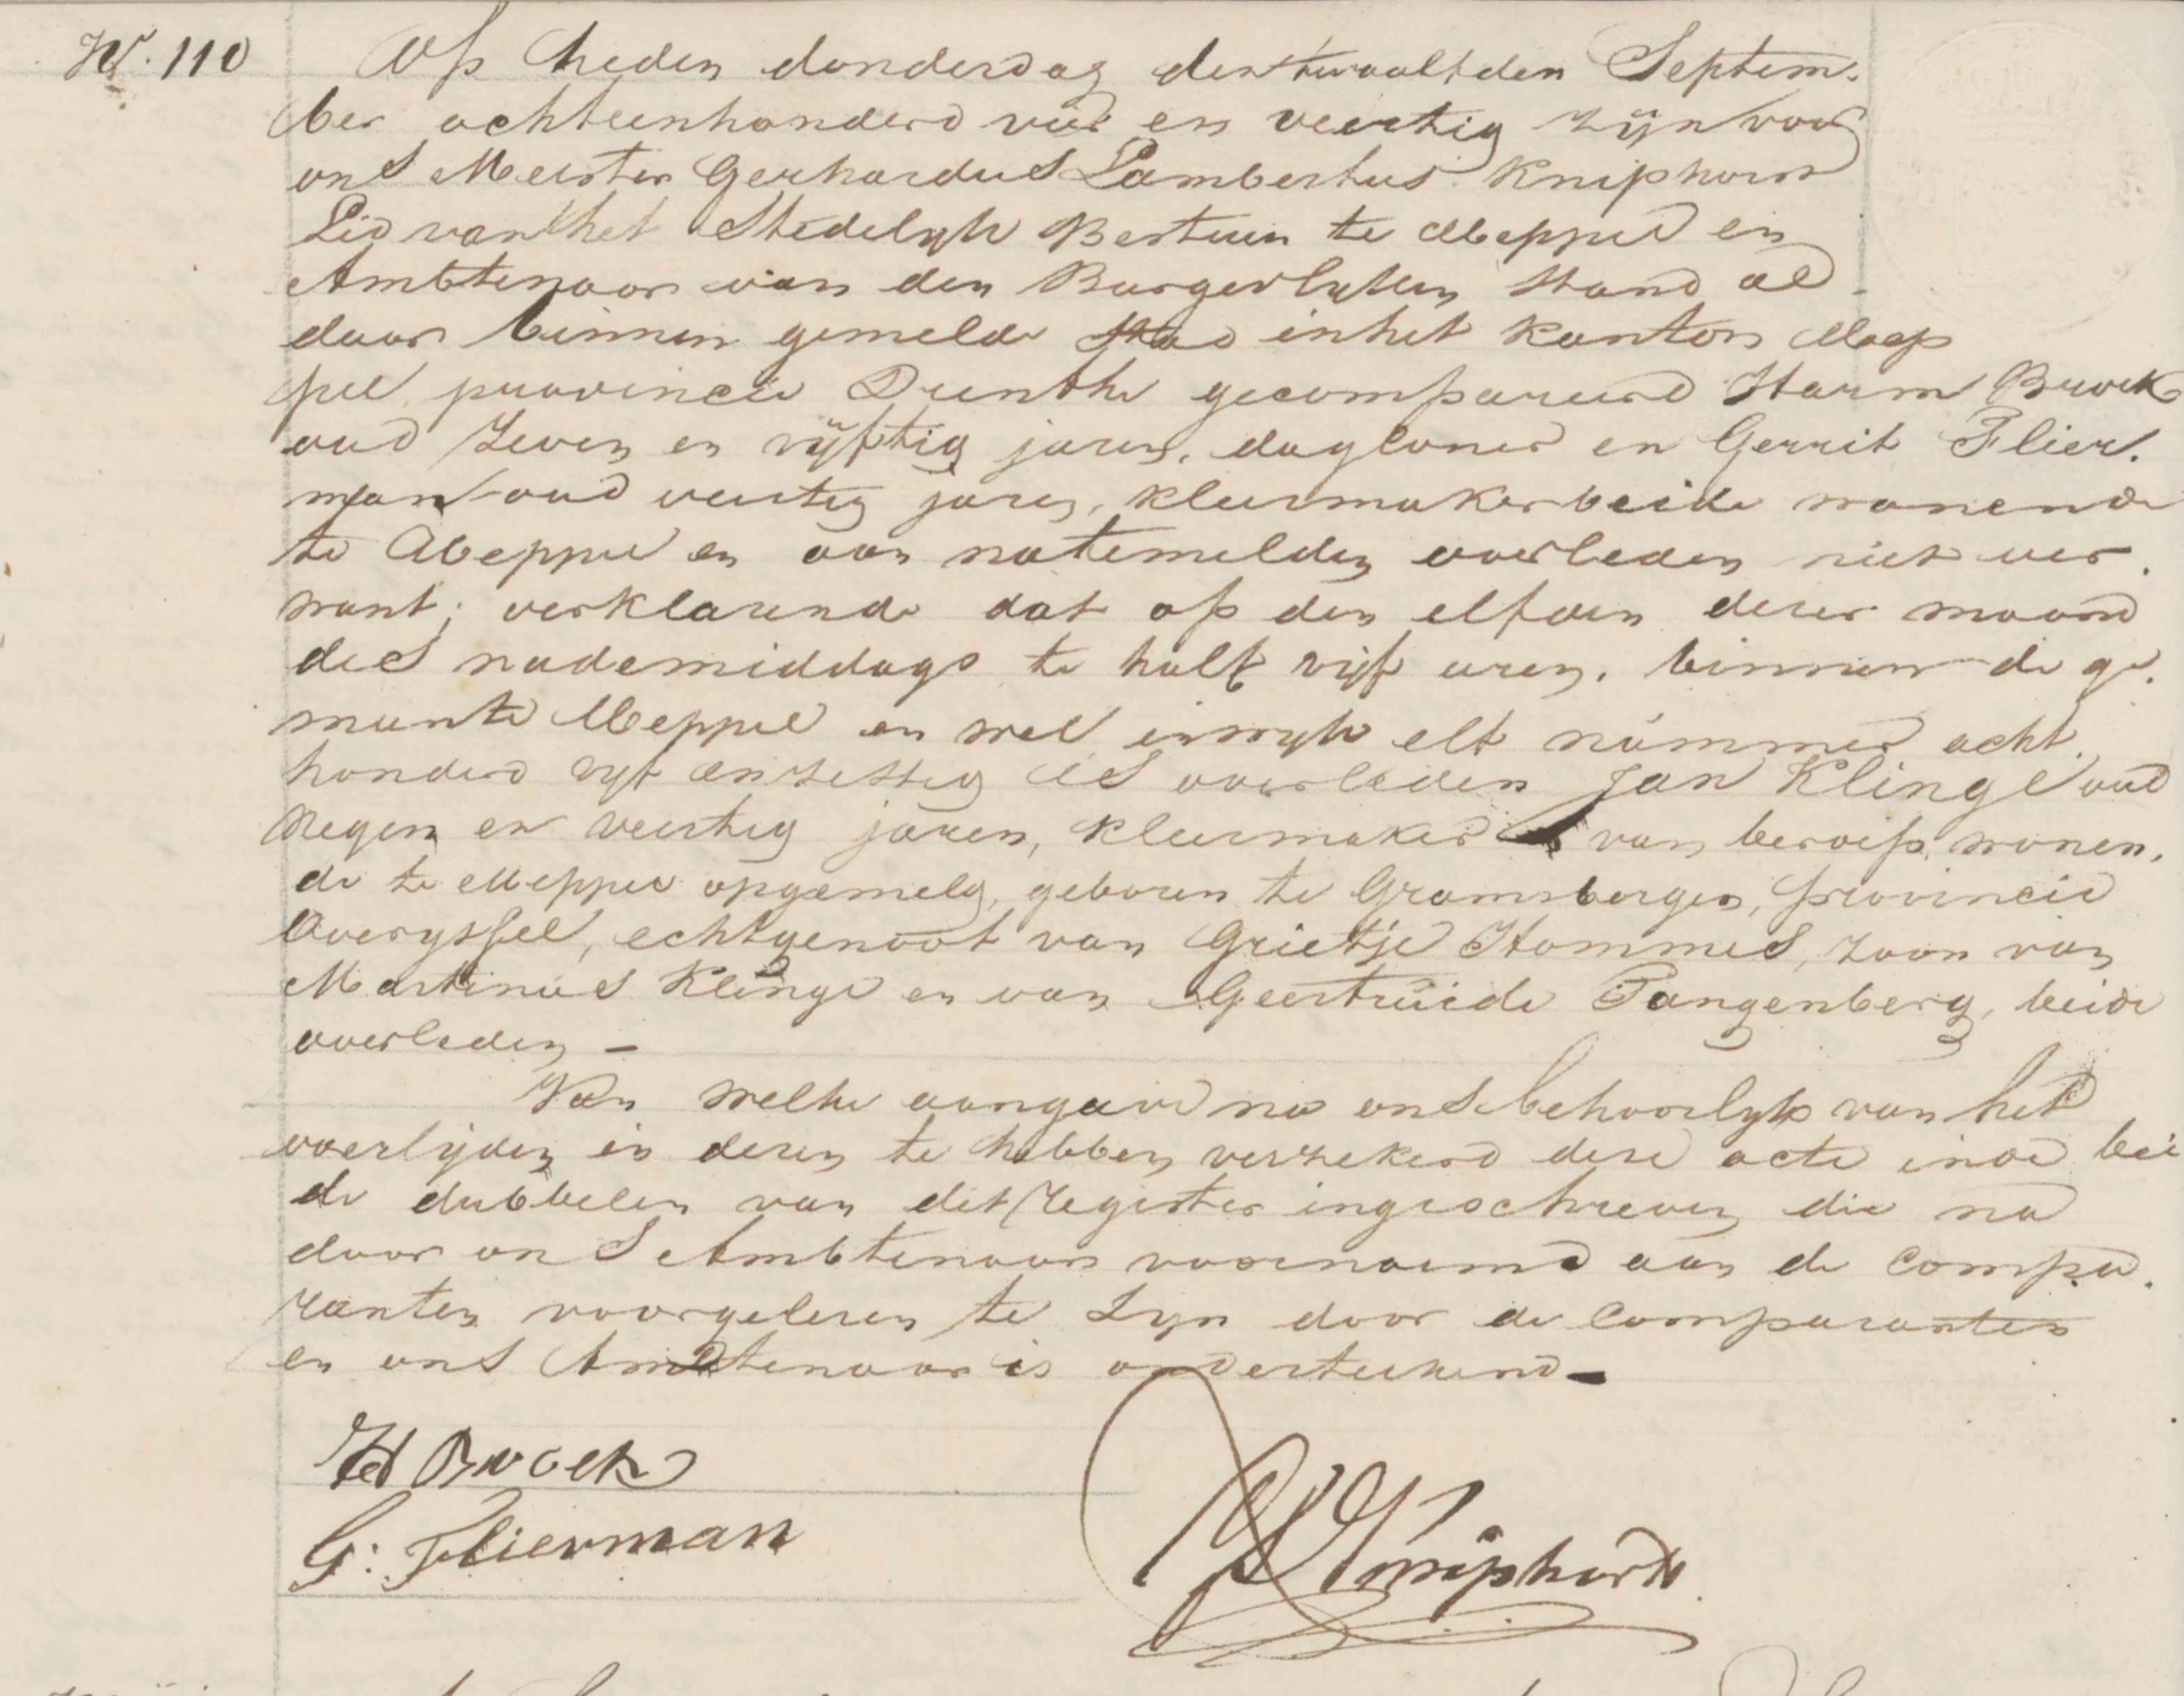 N. 110
Op heden donderdag den twaalfden Septem-
ber achttienhonderd vier en veertig zijn voor
ons Meester Gerhardus Lambertus Kniphorst
Lid van het Stedelyk Bestuur te Meppel en
Ambtenaar van den Burgerlyken Stand al-
daar binnen gemelde stad in het Kanton Mep
pel provincie Drenthe gecompareerd Harm Broek
oud zeven en vijftig jaren, dagloner en Gerrit Flier-
man oud veertig jaren, kleermaker beide wonende
te Meppel en aan natemelden overleden niet ver-
want; verklarende dat op den elfden dezer maand
des nademiddags te half vijf uren, binnen de ge-
meente Meppel en wel in wyk elf nummer acht-
honderd vyf en zestig is overleden Jan Klinge oud
Negen en veertig jaren, kleermaker van beroep, wonen-
de te Meppel opgemeld, geboren te Gramsbergen, provincie
Overyssel, echtgenoot van Grietje Hommes, zoon van
Martinus Klinge en van Geertruide Tangenberg, beide
overleden -
Van welke aangave na ons behoorlyk van het
overlijden in dezen te hebben verzekerd deze acte in de bei
de dubbelen van dit Register ingeschreven die na
door ons Ambtenaar voornoemd aan de compa-
ranten voorgelezen te zyn door de comparanten
en ons Ambtenaar is onderteekend -
H Broek
G: Flierman
GL Kniphorst